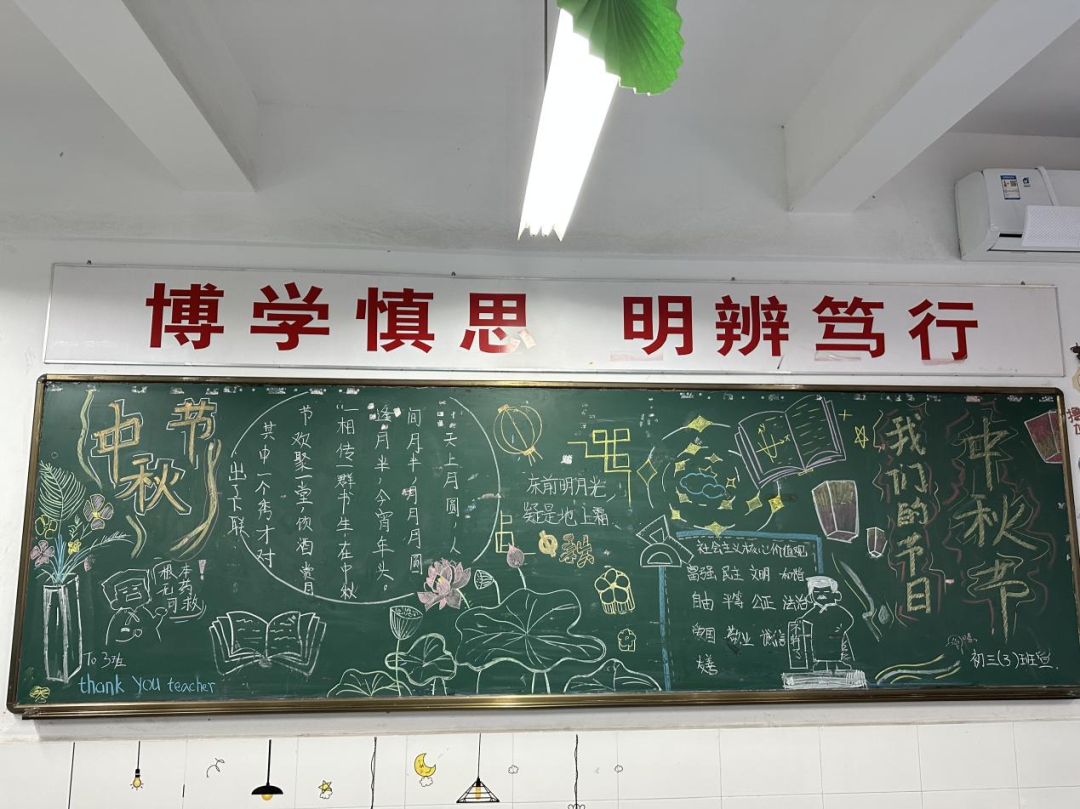 博学慎思 明辨笃行
中秋节
天上月圆，人
间月半，明月月圆
逢月半，今宵年头。
“相传一群书生，在中秋
节欢聚一堂，饮酒赏月
其中一个秀才对
出了下联
东前明月光，
疑是地上霜
中秋
社会主义核心价值观
富强 民主 文明 和谐
自由 平等 公正 法治
爱国 敬业 诚信
友善
我们的节日
中秋节
初三(3)班宣
根本
无药
可救！
To 3班
thank you teacher